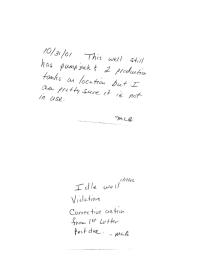 10/31/01 This well still
has pumpjack & 2 production
tanks on location but I
am pretty sure it is not
in use.
Idle well
Violation
Corrective action
from 1st Letter
Past due.